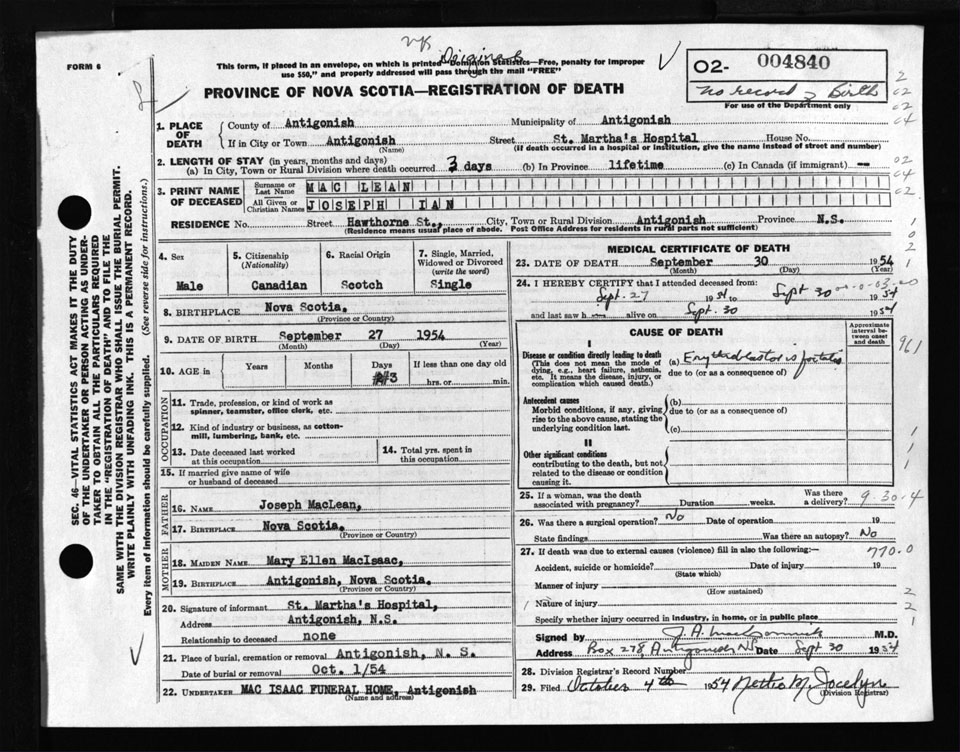 Original
FORM 6
This form, if placed in an envelope, on which is printed "Dominion Statistics—Free, penalty for improper
use $50," and properly addressed will pass through the mail "FREE"
02- 004840
no record of Birth
For use of the Department only
PROVINCE OF NOVA SCOTIA—REGISTRATION OF DEATH
1. PLACE OF DEATH
County of Antigonish Municipality of Antigonish
If in City or Town Antigonish Street St. Martha's Hospital House No.
(Name) (If death occurred in a hospital or institution, give the name instead of street and number)
2. LENGTH OF STAY (in years, months and days)
(a) In City, Town or Rural Division where death occurred 3 days (b) In Province lifetime (c) In Canada (if immigrant) --
3. PRINT NAME OF DECEASED
Surname or Last Name MAC LEAN
All Given or Christian Names JOSEPH IAN
RESIDENCE No. Street Hawthorne St., City, Town or Rural Division Antigonish Province N.S.
(Residence means usual place of abode. Post Office Address for residents in rural parts not sufficient)
4. Sex
Male
5. Citizenship
(Nationality)
Canadian
6. Racial Origin
Scotch
7. Single, Married,
Widowed or Divorced
(write the word)
Single
8. BIRTHPLACE Nova Scotia.
(Province or Country)
9. DATE OF BIRTH September 27 1954
(Month) (Day) (Year)
10. AGE in Years Months Days 3 If less than one day old
hrs. or min.
OCCUPATION
11. Trade, profession, or kind of work as
spinner, teamster, office clerk, etc.
12. Kind of industry or business, as cotton-
mill, lumbering, bank, etc.
13. Date deceased last worked
at this occupation
14. Total yrs. spent in
this occupation
15. If married give name of wife
or husband of deceased
FATHER
16. NAME Joseph MacLean,
17. BIRTHPLACE Nova Scotia.
(Province or Country)
MOTHER
18. MAIDEN NAME Mary Ellen MacIsaac,
19. BIRTHPLACE Antigonish, Nova Scotia.
(Province or Country)
20. Signature of informant St. Martha's Hospital,
Address Antigonish, N.S.
Relationship to deceased none
21. Place of burial, cremation or removal Antigonish, N. S.
Date of burial or removal Oct. 1/54
22. UNDERTAKER MAC ISAAC FUNERAL HOME, Antigonish
(Name and address)
MEDICAL CERTIFICATE OF DEATH
23. DATE OF DEATH September 30 1954
(Month) (Day) (Year)
24. I HEREBY CERTIFY that I attended deceased from:
Sept. 27 1954 to Sept 30 1954
and last saw h im alive on Sept. 30 1954
CAUSE OF DEATH
Approximate
interval be-
tween onset
and death
I
Disease or condition directly leading to death
(This does not mean the mode of
dying, e.g., heart failure, asthenia,
etc. It means the disease, injury, or
complication which caused death.)
(a) Erythroblastosis foetalis
due to (or as a consequence of)
Antecedent causes
Morbid conditions, if any, giving
rise to the above cause, stating the
underlying condition last.
(b)
due to (or as a consequence of)
(c)
II
Other significant conditions
contributing to the death, but not
related to the disease or condition
causing it.
961
25. If a woman, was the death
associated with pregnancy? Duration weeks. Was there
a delivery?
9-30-4
26. Was there a surgical operation? No Date of operation 19
State findings Was there an autopsy? No
27. If death was due to external causes (violence) fill in also the following:—
770.0
Accident, suicide or homicide? Date of injury 19
(State which)
Manner of injury
(How sustained)
Nature of injury
Specify whether injury occurred in industry, in home, or in public place
Signed by J. A. MacCormick M.D.
Address Box 278, Antigonish NS Date Sept 30 1954
28. Division Registrar's Record Number
29. Filed October 4th 1954 Nettie M. Jocelyn
(Division Registrar)
SEC. 46—VITAL STATISTICS ACT MAKES IT THE DUTY
OF THE UNDERTAKER OR PERSON ACTING AS UNDER-
TAKER TO OBTAIN ALL THE PARTICULARS REQUIRED
IN THE "REGISTRATION OF DEATH" AND TO FILE THE
SAME WITH THE DIVISION REGISTRAR WHO SHALL ISSUE THE BURIAL PERMIT.
WRITE PLAINLY WITH UNFADING INK. THIS IS A PERMANENT RECORD.
Every item of information should be carefully supplied. (See reverse side for instructions.)